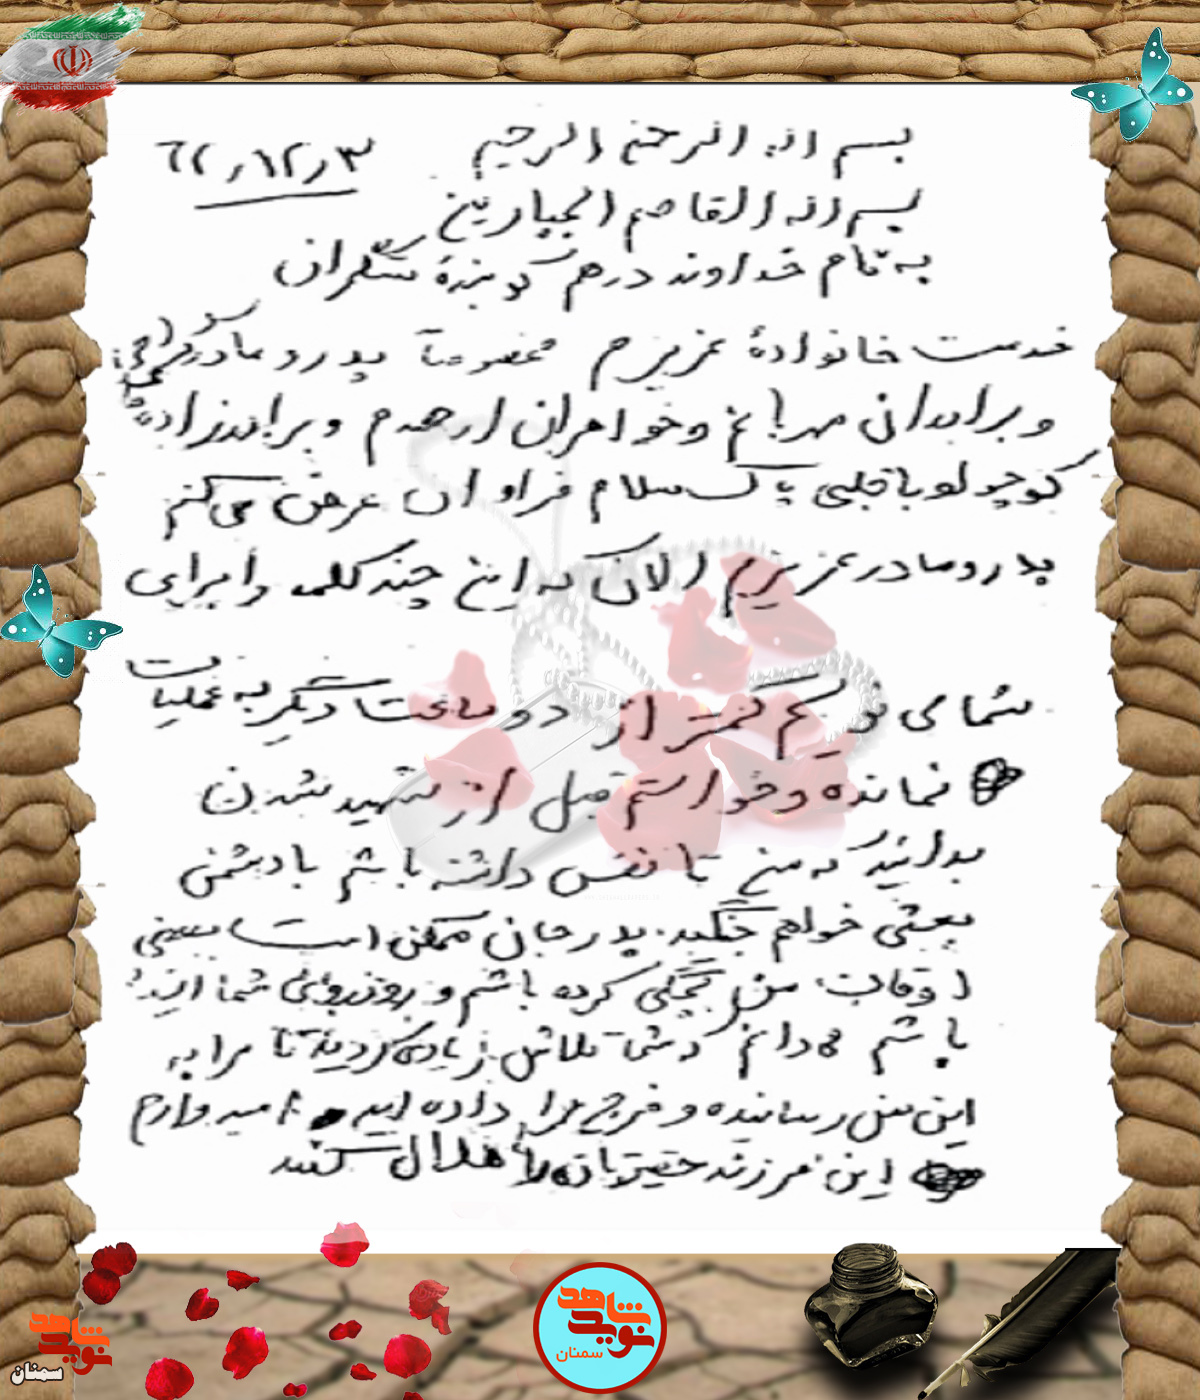 بسم الله الرحمن الرحیم
۶۲٫۱۲٫۳
بسم الله القاصم الجبارین
به نام خداوند درهم کوبندهٔ ستمگران
خدمت خانوادهٔ عزیزم مخصوصاً پدر و مادر گرامی
و برادران مهربانم و خواهران ارجمندم و برادرزاده
کوچولو با قلبی پاک سلام فراوان عرض می‌کنم
پدر و مادر عزیزم الان که این چند کلمه را برای
شما می نویسم کمتر از دو ساعت دیگر به عملیات
نمانده و خواستم قبل از شهید شدن
بدانید که من تا نفس داشته باشم با دشمن
بعثی خواهم جنگید. پدر جان ممکن است بعضی
اوقات من بچگی کرده باشم و روزروی شما ایستاده
باشم می دانم که شما تلاش زیادی کردید تا مرا به
این سن رسانیده و خرج مرا داده اید امیدوارم
این فرزند حقیرتان را حلال کنید
نوید شاهد
سمنان
نوید شاهد
سمنان